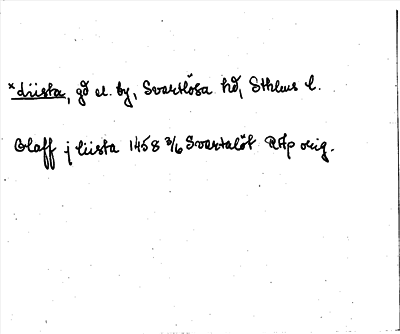 *Liista, gd el. by, Svartlösa hd, Sthlms l.
Olaff j liista 1458 3/6 Svartalöt RAp orig.